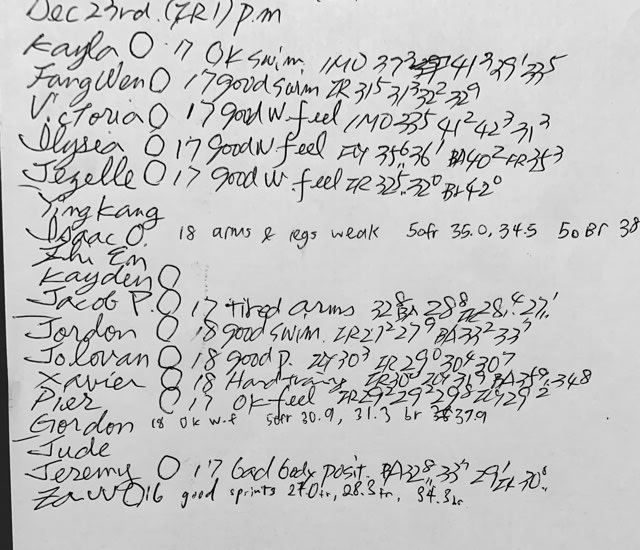 Dec 23rd. (FR 1) p.m
Kayla O 17 OK swim. IMO 37² 41³ 39¹ 33⁵
FangWen O 17 good swim FR 31⁵ 31³ 32² 32⁹
Victoria O 17 good w. feel IMO 33⁵ 41² 42³ 31³
Ilysia O 17 good w feel FLY 35⁶ 36¹ BA 40² FR 35³
Jezelle O 17 good w. feel FR 32⁵ 32⁰ Br 42⁰
YingKang
Isaac O. 18 arms & legs weak 50fr 35.0, 34.5 50 Br 38
Zhi En
Kayden O
Jacob P. O 17 tired arms 32⁸ BA 28⁸ 28.⁴ 27.¹
Jordon O 18 good swim. FR 27² 27⁹ BA 33² 33⁷
Jolovan O 18 good p. FLY 30³ FR 29⁰ 30⁴ 30⁷
Xavier O 18 Hard FR 30⁰ FLY 31⁹ BA 35⁹, 34.8
Pier O 17 OK feel FR 29² 29² 29⁸ FLY 29²
Gordon 18 OK w.f 50fr 30.9, 31.3 br 37.9
Jude
Jeremy O 17 bad body posit. BA 32⁸ 33⁴ 29¹ FR 30⁶
Zaw O 16 good sprints 27.0fr, 28.3fr, 34.3br